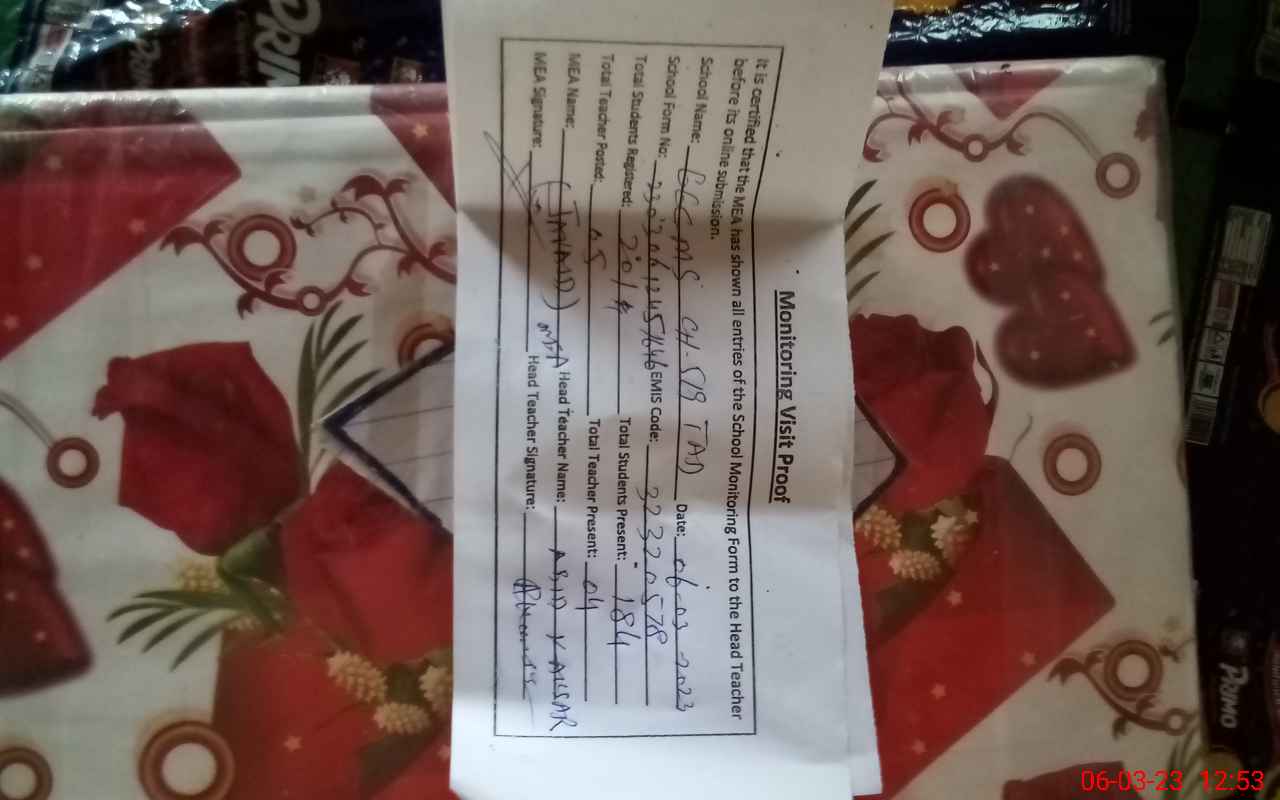 Monitoring Visit Proof
It is certified that the MEA has shown all entries of the School Monitoring Form to the Head Teacher
before its online submission.
School Name: CH-519 TAD Date: 06-03-2023
School Form No: EMIS Code: 32320578
Total Students Registered: 201 Total Students Present: 184
Total Teacher Posted: 05 Total Teacher Present: 04
MEA Name: (JAVAID) MEA Head Teacher Name: ABID YAKSAR
MEA Signature: Head Teacher Signature:
PRINO
PRINO
PRINO
06-03-23 12:53